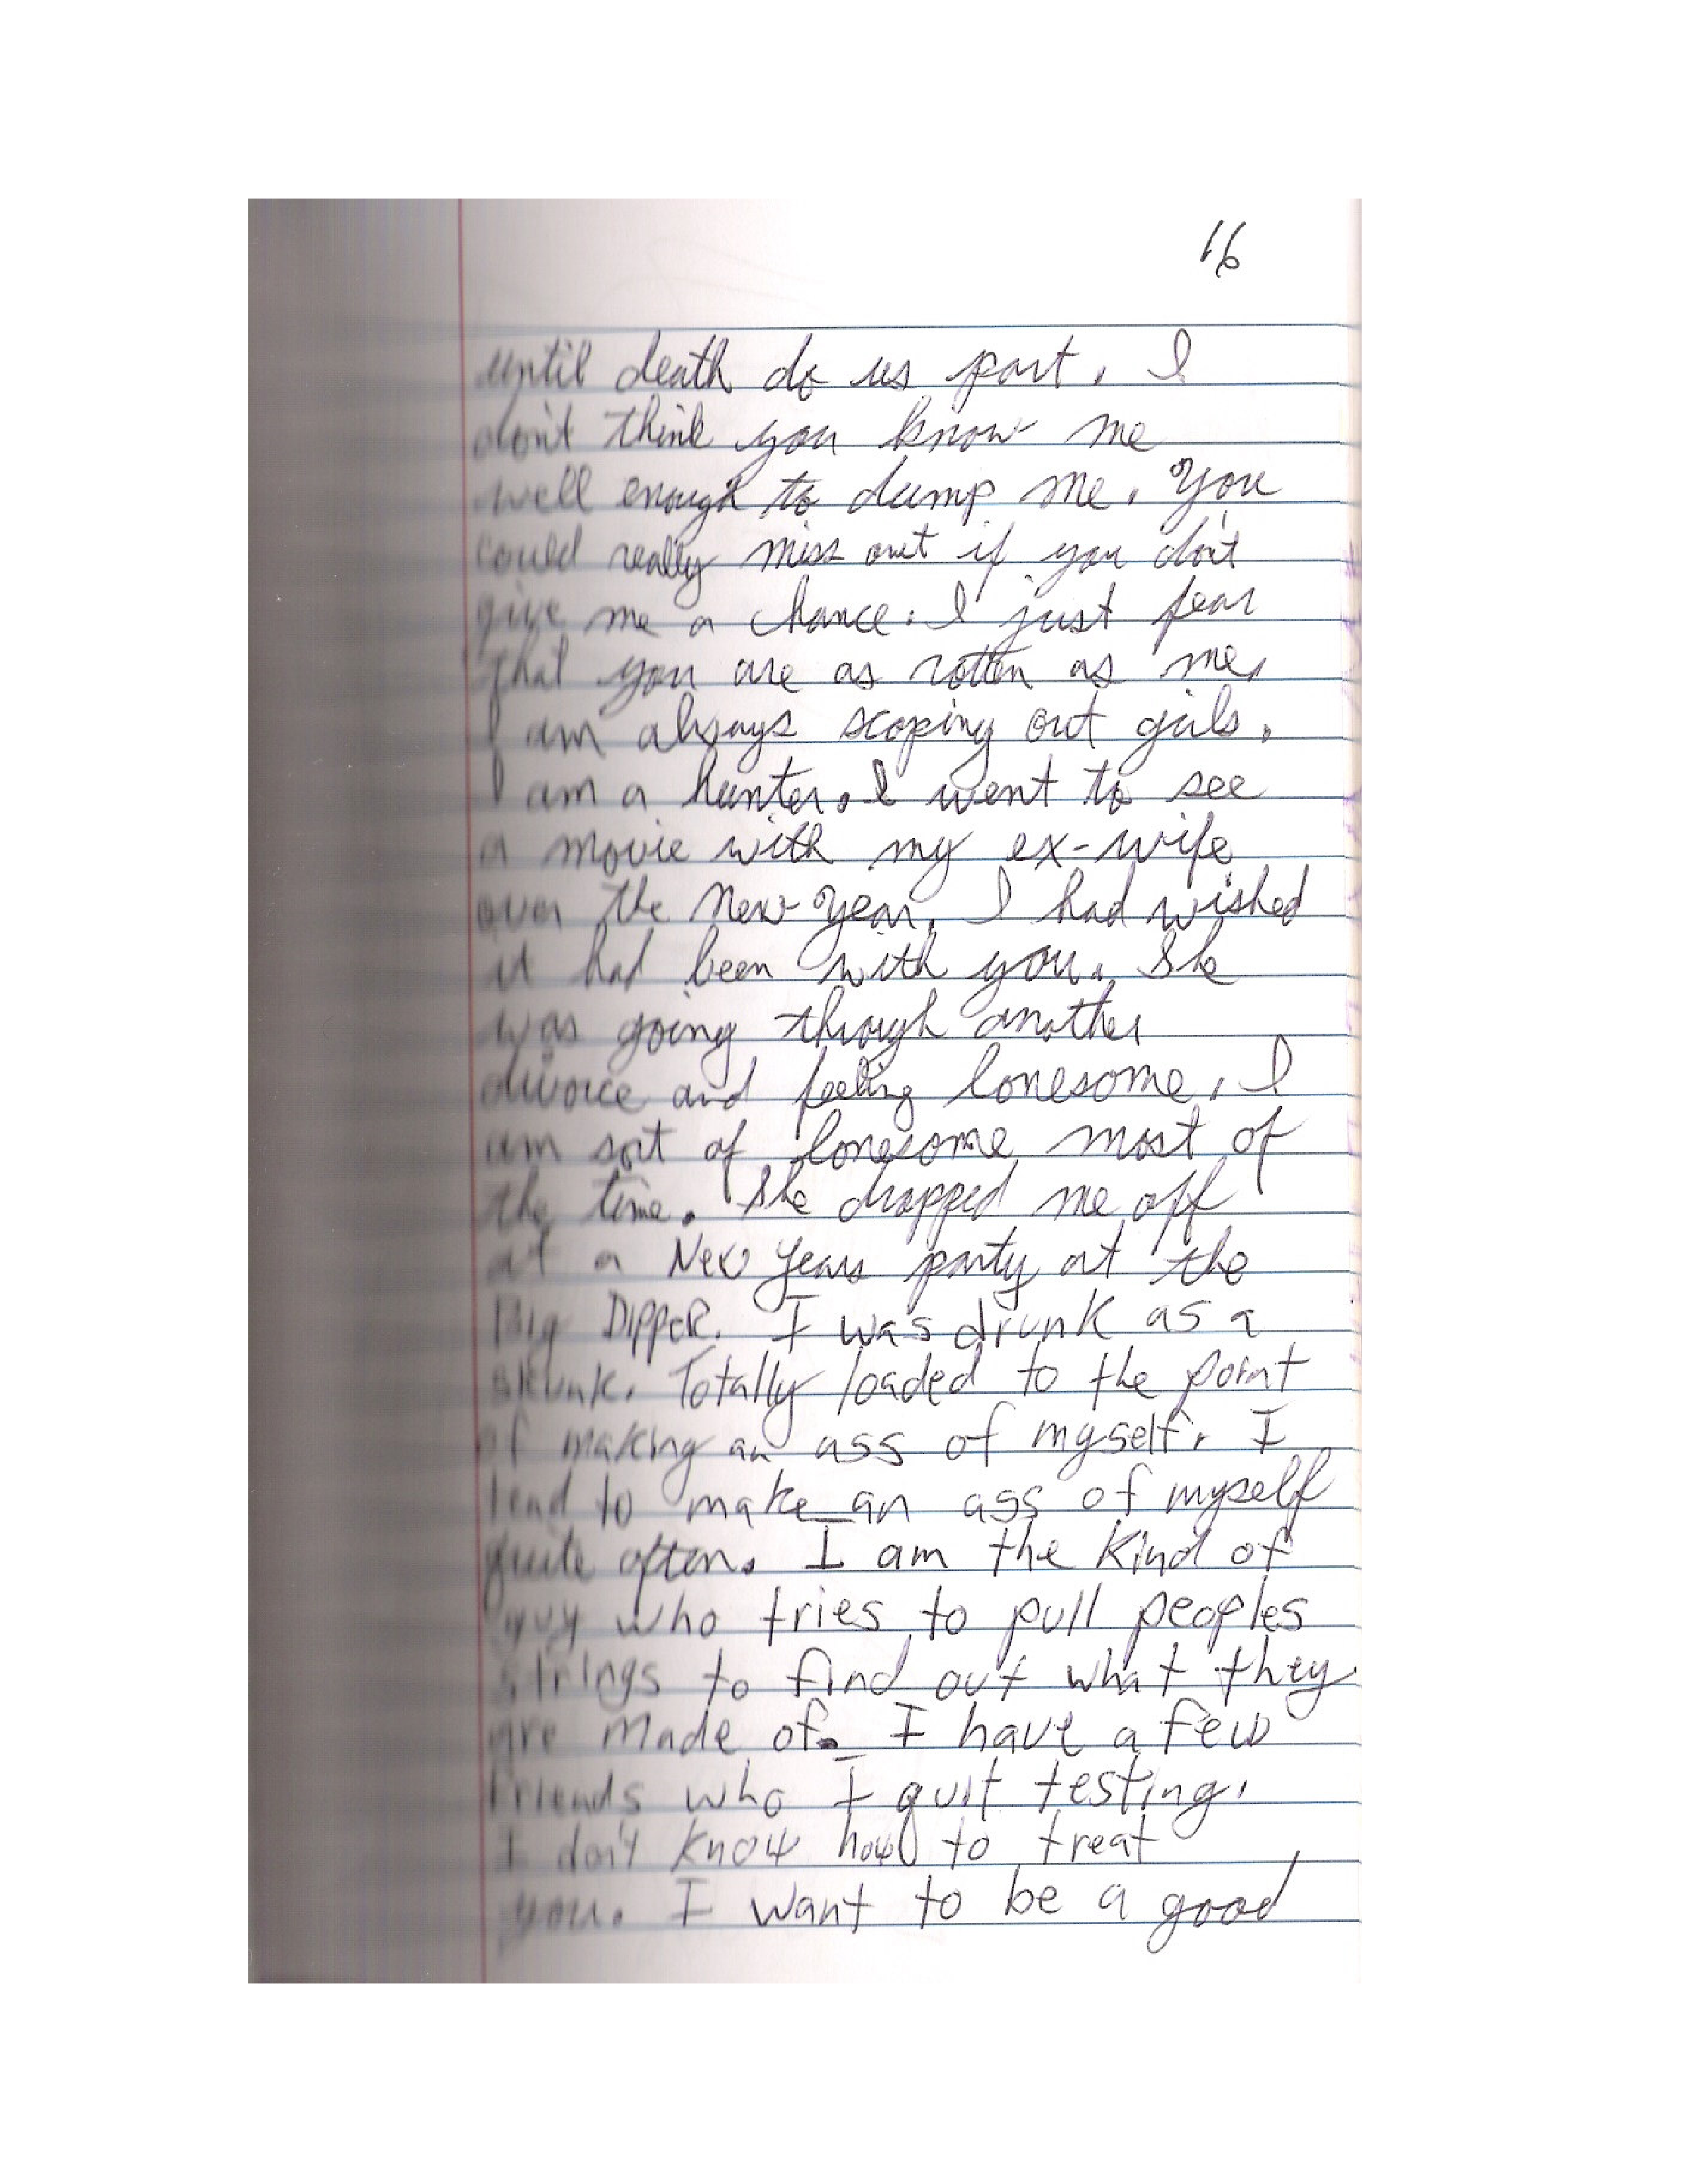 16
until death do us part. I
don't think you know me
well enough to dump me. You
could really miss out if you don't
give me a chance. I just fear
that you are as rotten as me.
I am always scoping out girls.
I am a hunter. I went to see
a movie with my ex-wife
over the New Year. I had wished
it had been with you. She
was going through another
divorce and feeling lonesome. I
am sort of lonesome most of
the time. She dropped me off
at a New Years party at the
Big DIPPER. I was drunk as a
skunk. Totally loaded to the point
of making an ass of myself. I
tend to make an ass of myself
quite often. I am the kind of
guy who tries to pull peoples
strings to find out what they
are made of. I have a few
friends who I quit testing.
I don't know how to treat
you. I want to be a good